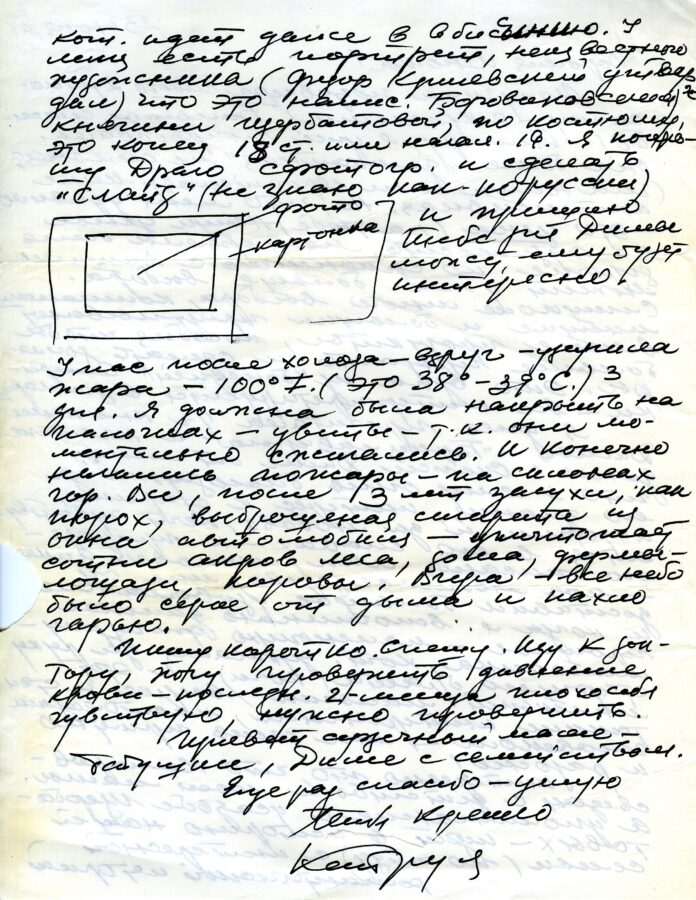 кот. идет даже в Абиссинию. У
меня есть портрет, неизвестного
художника (Федор
дал) что это напис. Боровиковский
княгини Щербатовой, по костюму,
это конец 18 ст. или начал. 19. Я попро-
шу сфотогр. и сделать
"Слайд" (не знаю как - по русски)
фото
и пришлю
картонка
Тебе для Димы
может, ему будет
интересно.
У нас после холода - вдруг - ударила
жара - 100° F. (это 38° - 39° С.) 3
дня. Я должна была накрыть на
палочках - цветы - т.к. они мо-
ментально сжигались. И конечно
начались пожары - на склонах
гор. Все, после 3 лет засухи, как
порох, выброшеная сигарета из
окна автомобиля - уничтожает
сотни акров леса, дома, фермы -
лошади, коровы. Вчера - все небо
было серое от дыма и пахло
гарью.
Пишу коротко. Спешу. Иду к док-
тору, хочу проверить давление
крови - последн. 2 - месяца плохо себя
чувствую, нужно проверить.
Привет сердечный маме -
бабушке, Диме с семейством.
Еще раз спасибо - целую
Тебя крепко